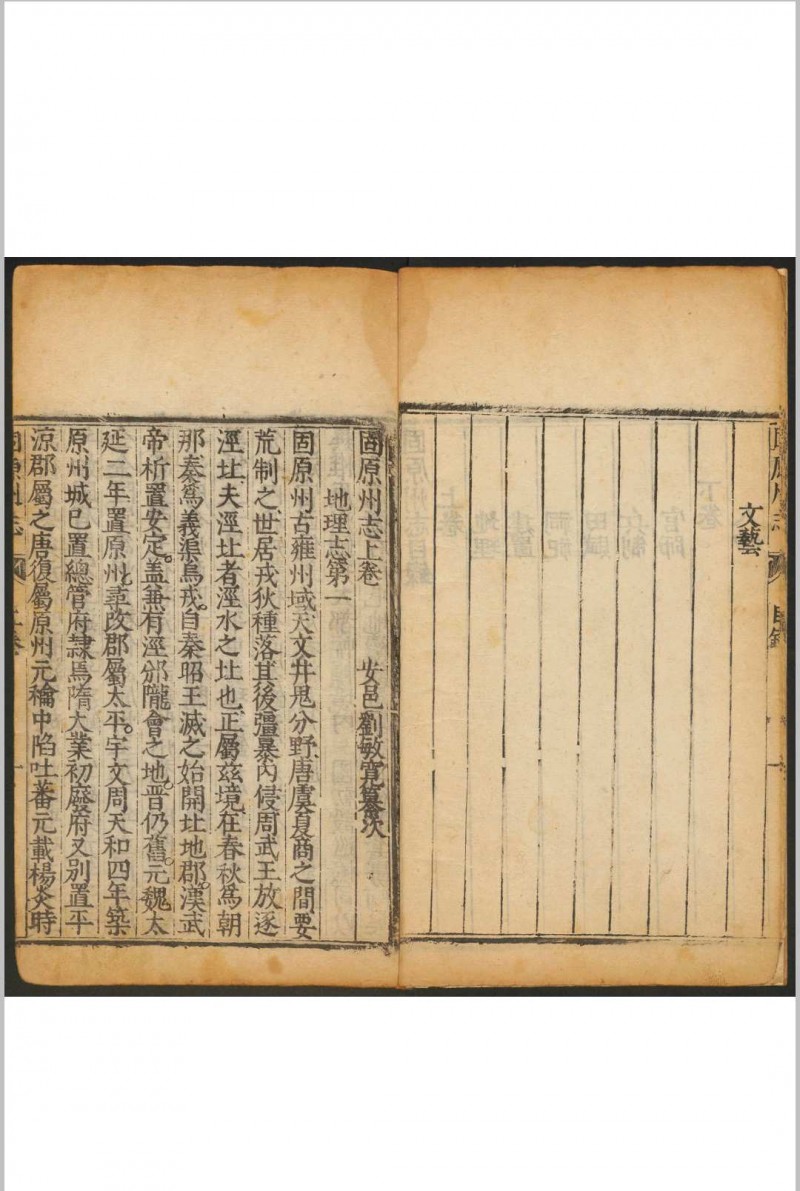 文藝
固原州志 目録 一
固原州志上卷
安邑劉敏寬纂次
地理志第一
固原州古雍州域天文井鬼分野唐虞夏商之間要
荒制之世居戎狄種落其後彊暴內侵周武王放逐
涇北夫涇北者涇水之北也正屬兹境在春秋為朝
那秦為義渠烏戎自秦昭王滅之始開北地郡漢武
帝析置安定蓋兼有涇邠隴會之地晋仍舊元魏太
延二年置原州尋改郡屬太平宇文周天和四年築
原州城巳置總管府隷焉隋大業初廢府又别置平
涼郡屬之唐復屬原州元稱中陷吐蕃元載楊炎時
固原州志 上卷 一